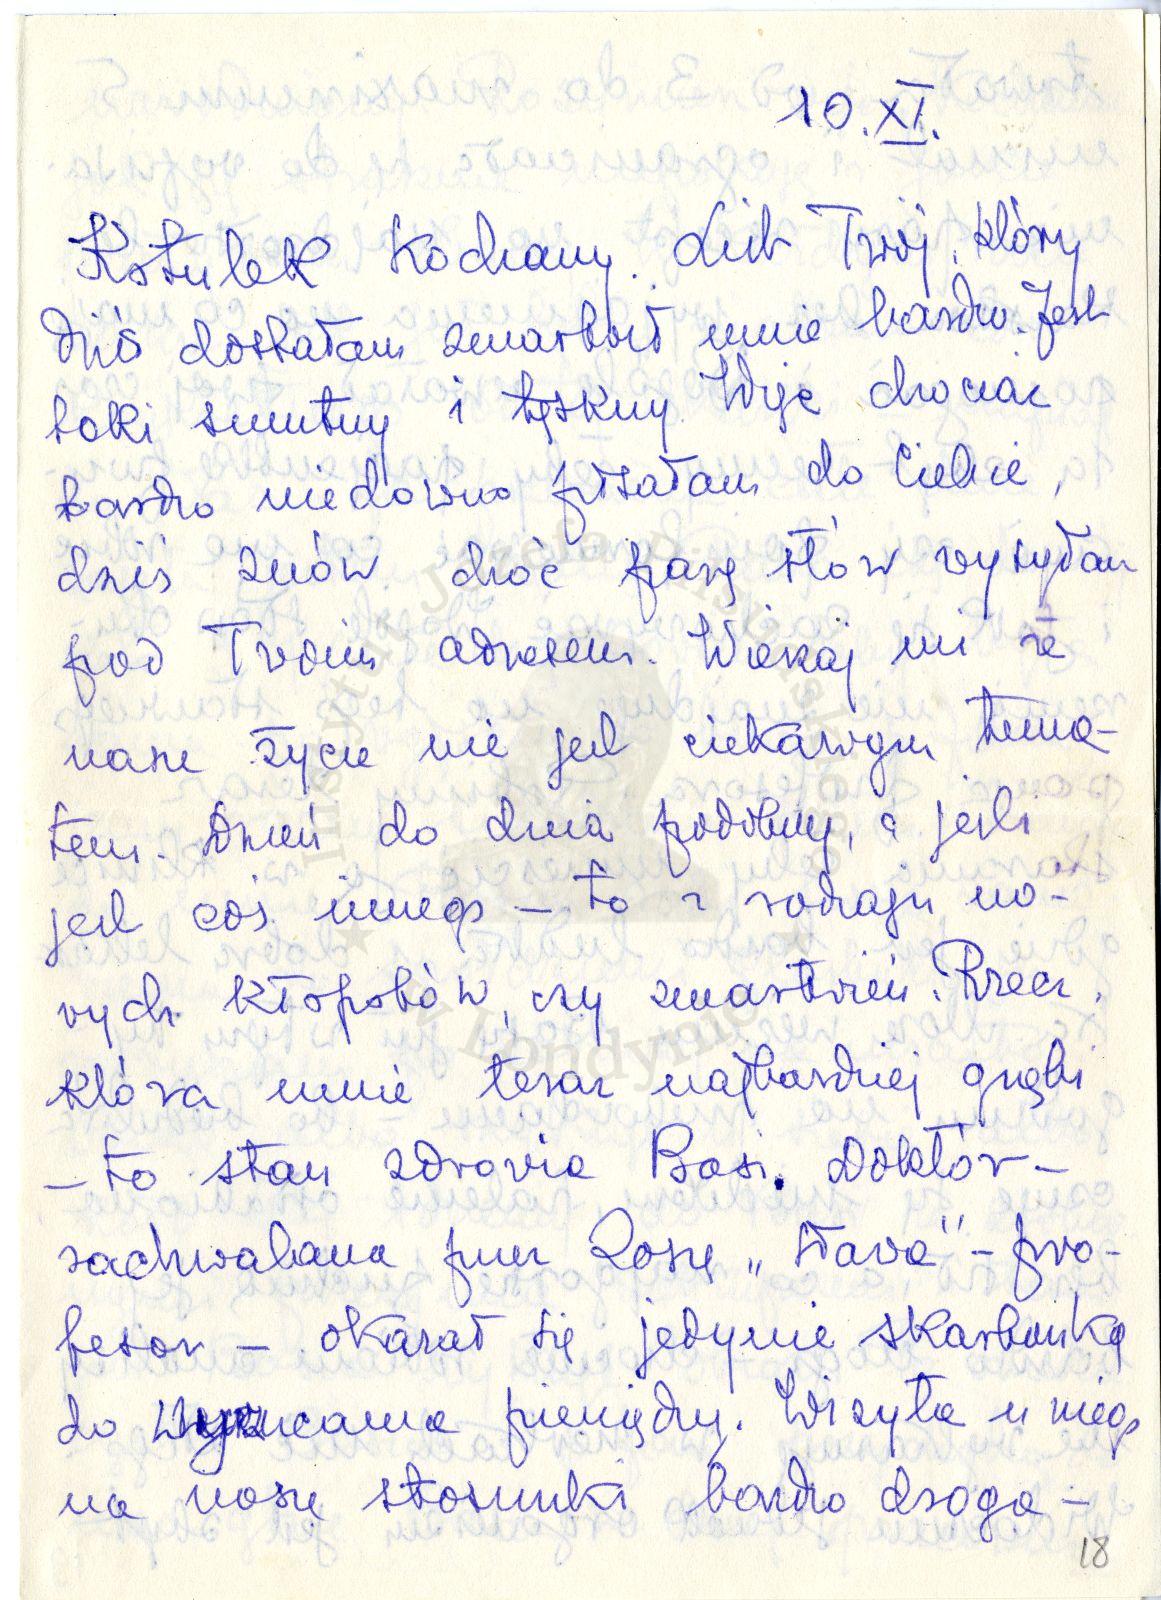 10.XI.
Kotulek Kochany. List Twój, który
dziś dostałam zmartwił mnie bardzo. Jest
taki smutny i tęskny. Więc chociaż
bardzo niedawno pisałam do Ciebie,
dziś znów choć parę słów wysyłam
pod Twoim adresem. Wierzaj mi że
nasze życie nie jest ciekawym tema-
tem. Dzień do dnia podobny, a jeśli
jest coś innego – to z rodzaju no-
wych kłopotów, czy zmartwień. Rzecz,
która mnie teraz najbardziej gnębi
– to stan zdrowia Basi. Doktór –
zachwalana przez Zosię „sława” – pro-
fesor – okazał się jedynie skarbonką
do wrzucania pieniędzy. Wizyta u niego
na nasze stosunki bardzo droga –
18
Instytut Józefa Piłsudskiego
w Londynie